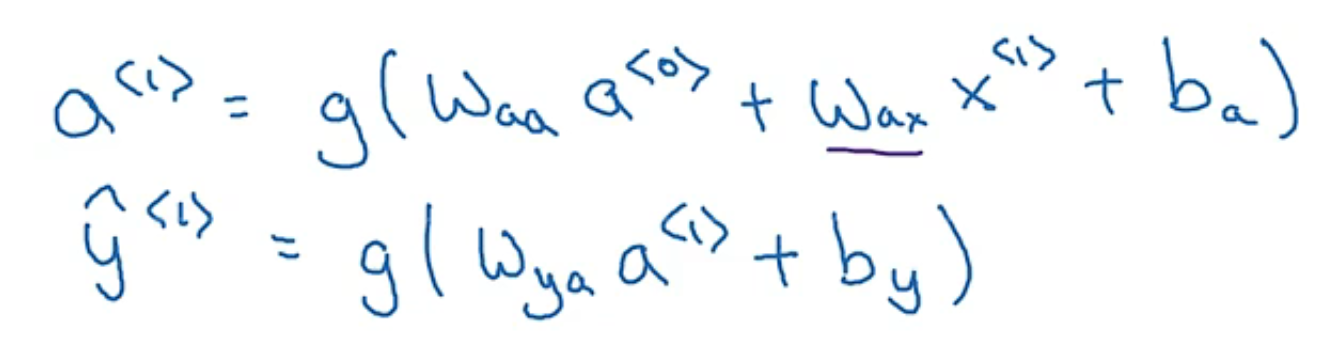 a^{<1>} = g(W_{aa} a^{<0>} + W_{ax} x^{<1>} + b_a)
ŷ^{<1>} = g(W_{ya} a^{<1>} + b_y)